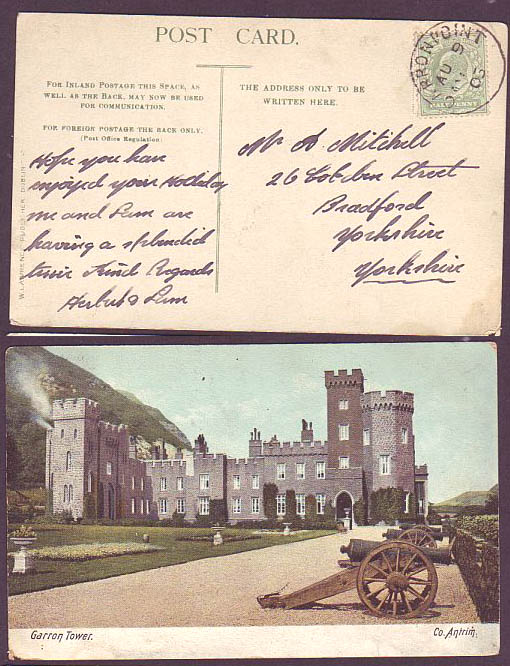 POST CARD.
FOR INLAND POSTAGE THIS SPACE, AS
WELL AS THE BACK, MAY NOW BE USED
FOR COMMUNICATION.
FOR FOREIGN POSTAGE THE BACK ONLY.
(Post Office Regulation)
THE ADDRESS ONLY TO BE
WRITTEN HERE.
Hope you have
enjoyed your Holiday
me and Sam are
having a splendid
time Kind Regards
Herbert & Sam
Mr A Mitchell
26 Cobden Street
Bradford
Yorkshire
Yorkshire
W. LAWRENCE, PUBLISHER, DUBLIN
HALFPENNY
Garron Tower.
Co. Antrim.